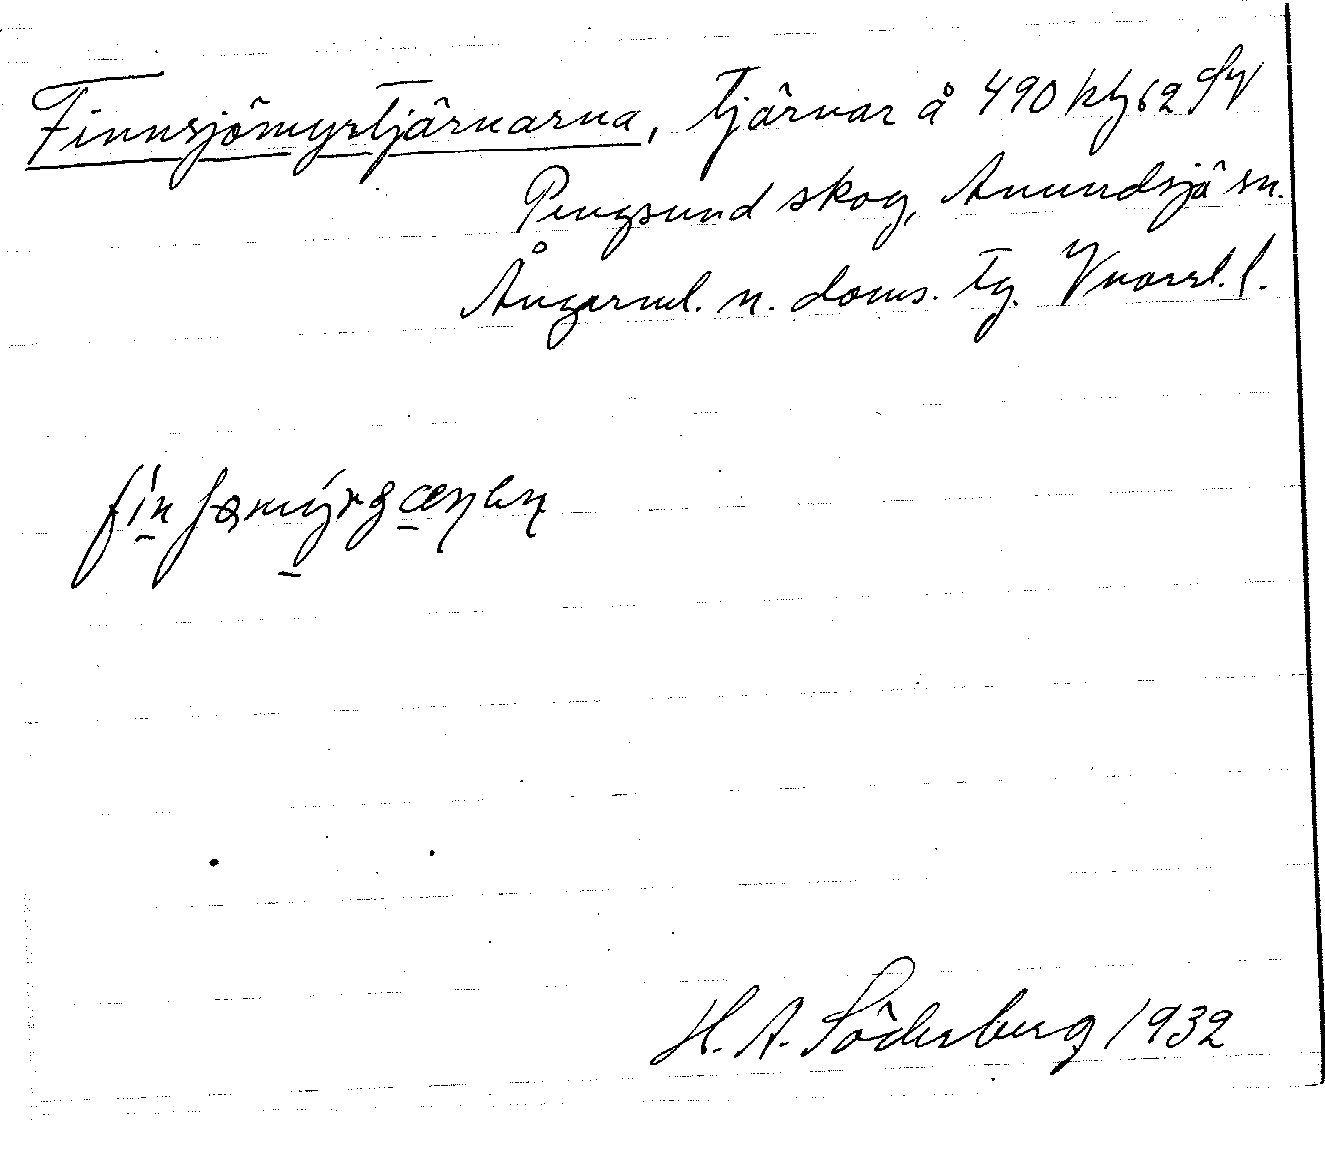 Finnsjömyrtjärnarna, tjärnar å 490 ktg 62 SV
Pengsund skog, Anundsjö sn.
Ångerml. n. doms. tg. Vnorrl. l.
H. A. Söderberg 1932